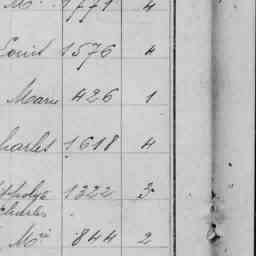 M. 1771 4
Louis 1576 4
Marie 426 1
Charles 1618 4
1322 3
Charles
Me 844 2